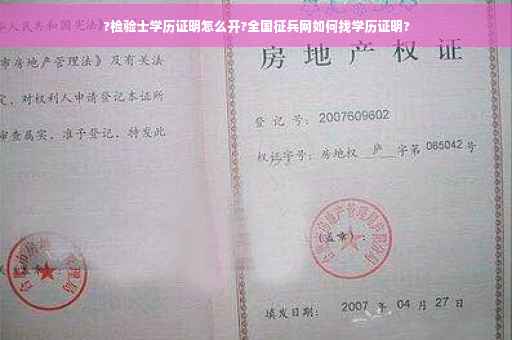 ?检验士学历证明怎么开?全国征兵网如何找学历证明?
人民共和国宪法》
市房地产管理法》及有关法
定，对权利人申请登记本证所
审查属实，准予登记，特发此
房地产权证
登记号：2007609602
权证字号：房地权 庐 字第 065042 号
(盖章)：
填发日期： 2007 年 04 月 27 日